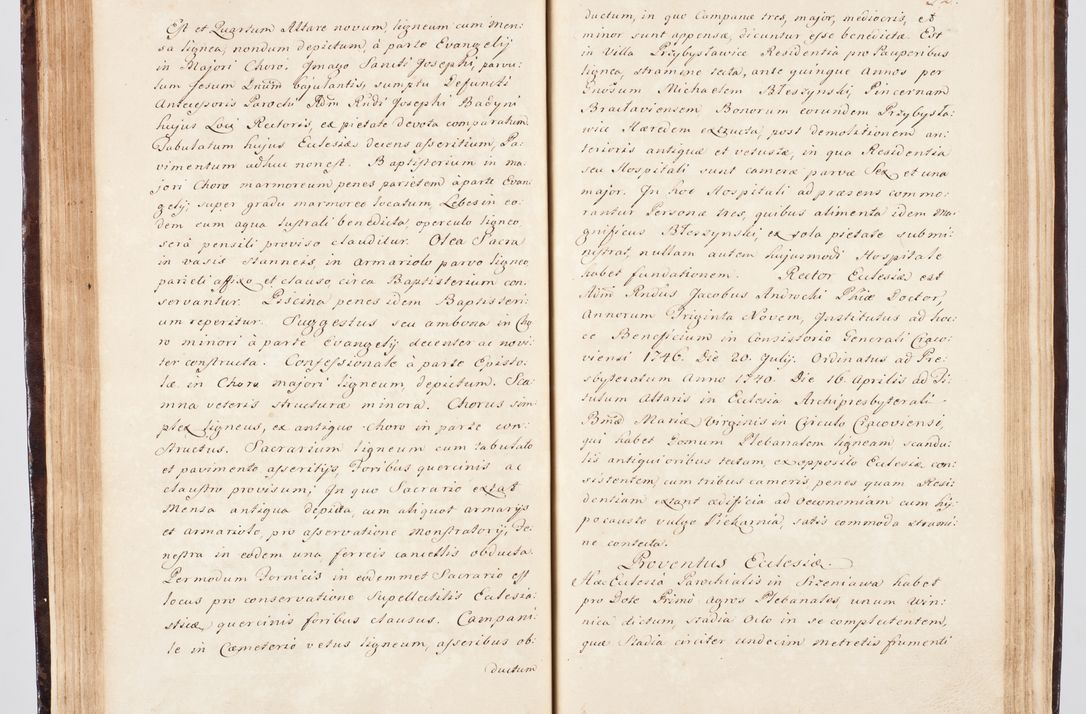 Est et Quartum Altare novum, ligneum cum Men-
sa lignea, nondum depictum, à parte Evangelij
in Majori Choro. Imago Sancti Josephi, parvu-
lum Jesum Dnum bajulantis, sumptu Defuncti
Antecessoris Parochi Adm Rndi Josephi
hujus Loci Rectoris, ex pietate devota comparatum.
Tabulatum hujus Ecclesiæ decens asseritium, Pa-
vimentum adhuc non est. Baptisterium in ma-
jori Choro marmoreum, penes parietem à parte Evan-
gelij, super gradu marmoreo locatum, Lebes in eo-
dem cum aqua lustrali benedicta, operculo ligneo,
serà pensili proviso clauditur. Olea Sacra
in vasis stanneis, in armariolo parvo ligneo,
parieti affixo, et clauso, circa Baptisterium con-
servantur. Piscina penes idem Baptisteri-
um reperitur. Suggestus seu ambona in Cho-
ro minori à parte Evangelij decenter ac novi-
ter constructa. Confessionale à parte Episto-
læ, in Choro majori ligneum, depictum. Sca-
mna veteris structuræ minora. Chorus sim-
plex ligneus, ex antiquo Choro in parte con-
structus. Sacrarium ligneum cum tabulato
et pavimento, asseritijs, foribus quercinis ac
claustro provisum; In quo Sacrario extat
Mensa antiqua depicta, cum aliquot armarijs
et armariolo, pro asservatione Monstratorij, Fe-
nestra in eodem una ferreis cancellis obducta.
Per modum Fornicis in eodemmet Sacrario est
locus pro conservatione Supellectilis Ecclesia-
sticæ, quercinis foribus clausus. Campani-
le in Cæmeterio vetus ligneum, asseribus ob-
ductum
ductum, in quo Campanæ tres, major, mediocris, et
minor sunt appensæ, dicuntur esse benedictæ. Est
in Villa Przybysławice Residentia pro Pauperibus
lignea, stramine tecta, ante quinque Annos per
Gnosum Michaelem Błeszynski Pincernam
Bractaviensem Bonorum eorundem Przybysła-
wice Hæredem extructa, post demolitionem an-
terioris antiquæ et vetustæ, in qua Residentia
seu Hospitali sunt cameræ parvæ Sex, et una
major. In hoc Hospitali ad præsens commo-
rantur Personæ tres, quibus alimenta idem Ma-
gnificus Błeszynski, ex sola pietate submi-
nistrat, nullam autem hujusmodi Hospitale
habet fundationem. Rector Ecclesiæ est
Adm Rndus Jacobus Androchi Phiæ Doctor,
Annorum Triginta Novem, Institutus ad ho-
ce Beneficium in Consistorio Generali Craco-
viensi 1746. Die 20. Julij. Ordinatus ad Pre-
sbyteratum Anno 1740. Die 16 Aprilis ad Ti-
tulum Altaris in Ecclesia Archipresbyterali
Bmæ Mariæ Virginis in Circulo Cracoviensi,
qui habet Domum Plebanalem ligneam, scandu-
lis antiquioribus tectam, ex opposito Ecclesiæ con-
sistentem, cum tribus cameris, penes quam Resi-
dentiam extant ædificia ad œconomiam cum hy-
pocausto vulgo Piekarnia, satis commoda strami-
ne contecta.
Proventus Ecclesiæ.
Hæc Ecclesia Parochialis in Szreniawa habet
pro Dote Primi agros Plebanales, unum Win-
nica dictum, stadia Octo in se complectentem,
quæ stadia circiter undecim metretis frumenti